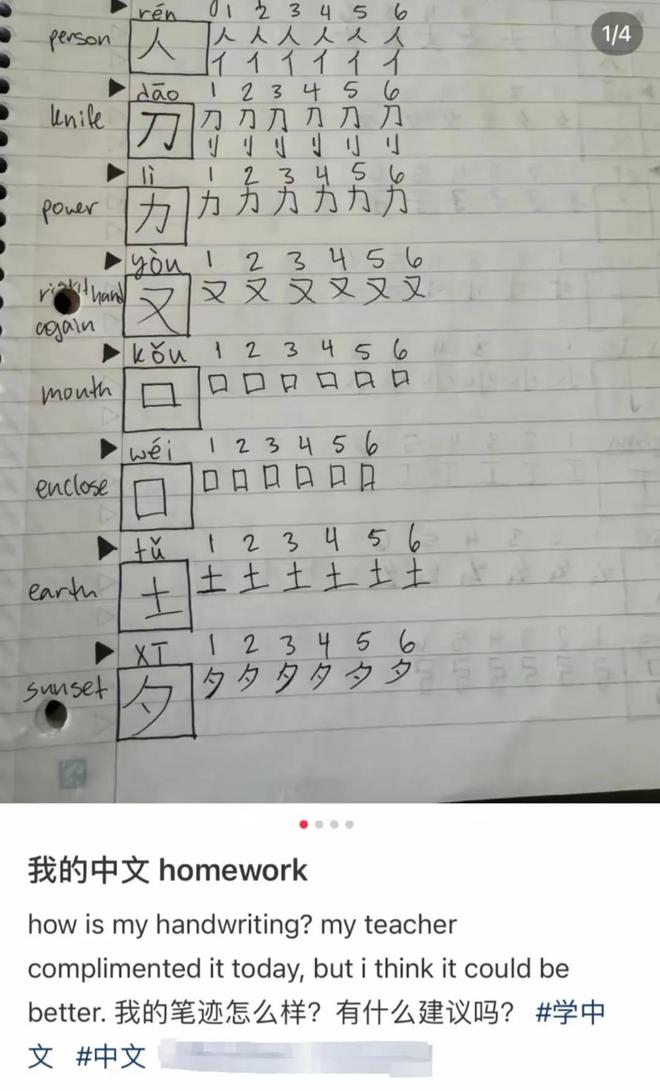 rén 0 1 2 3 4 5 6
person 人 人 人 人 人 人 人
亻 亻 亻 亻 亻 亻
dāo 1 2 3 4 5 6
knife 刀 刀 刀 刀 刀 刀 刀
刂 刂 刂 刂 刂 刂
lì 1 2 3 4 5 6
power 力 力 力 力 力 力 力
yòu 1 2 3 4 5 6
right hand 又 又 又 又 又 又 又
again
kǒu 1 2 3 4 5 6
mouth 口 口 口 口 口 口 口
wéi 1 2 3 4 5 6
enclose 囗 囗 囗 囗 囗 囗 囗
tǔ 1 2 3 4 5 6
earth 土 土 土 土 土 土 土
XI 1 2 3 4 5 6
sunset 夕 夕 夕 夕 夕 夕 夕
1/4
我的中文 homework
how is my handwriting? my teacher
complimented it today, but i think it could be
better. 我的笔迹怎么样？有什么建议吗？ #学中
文 #中文